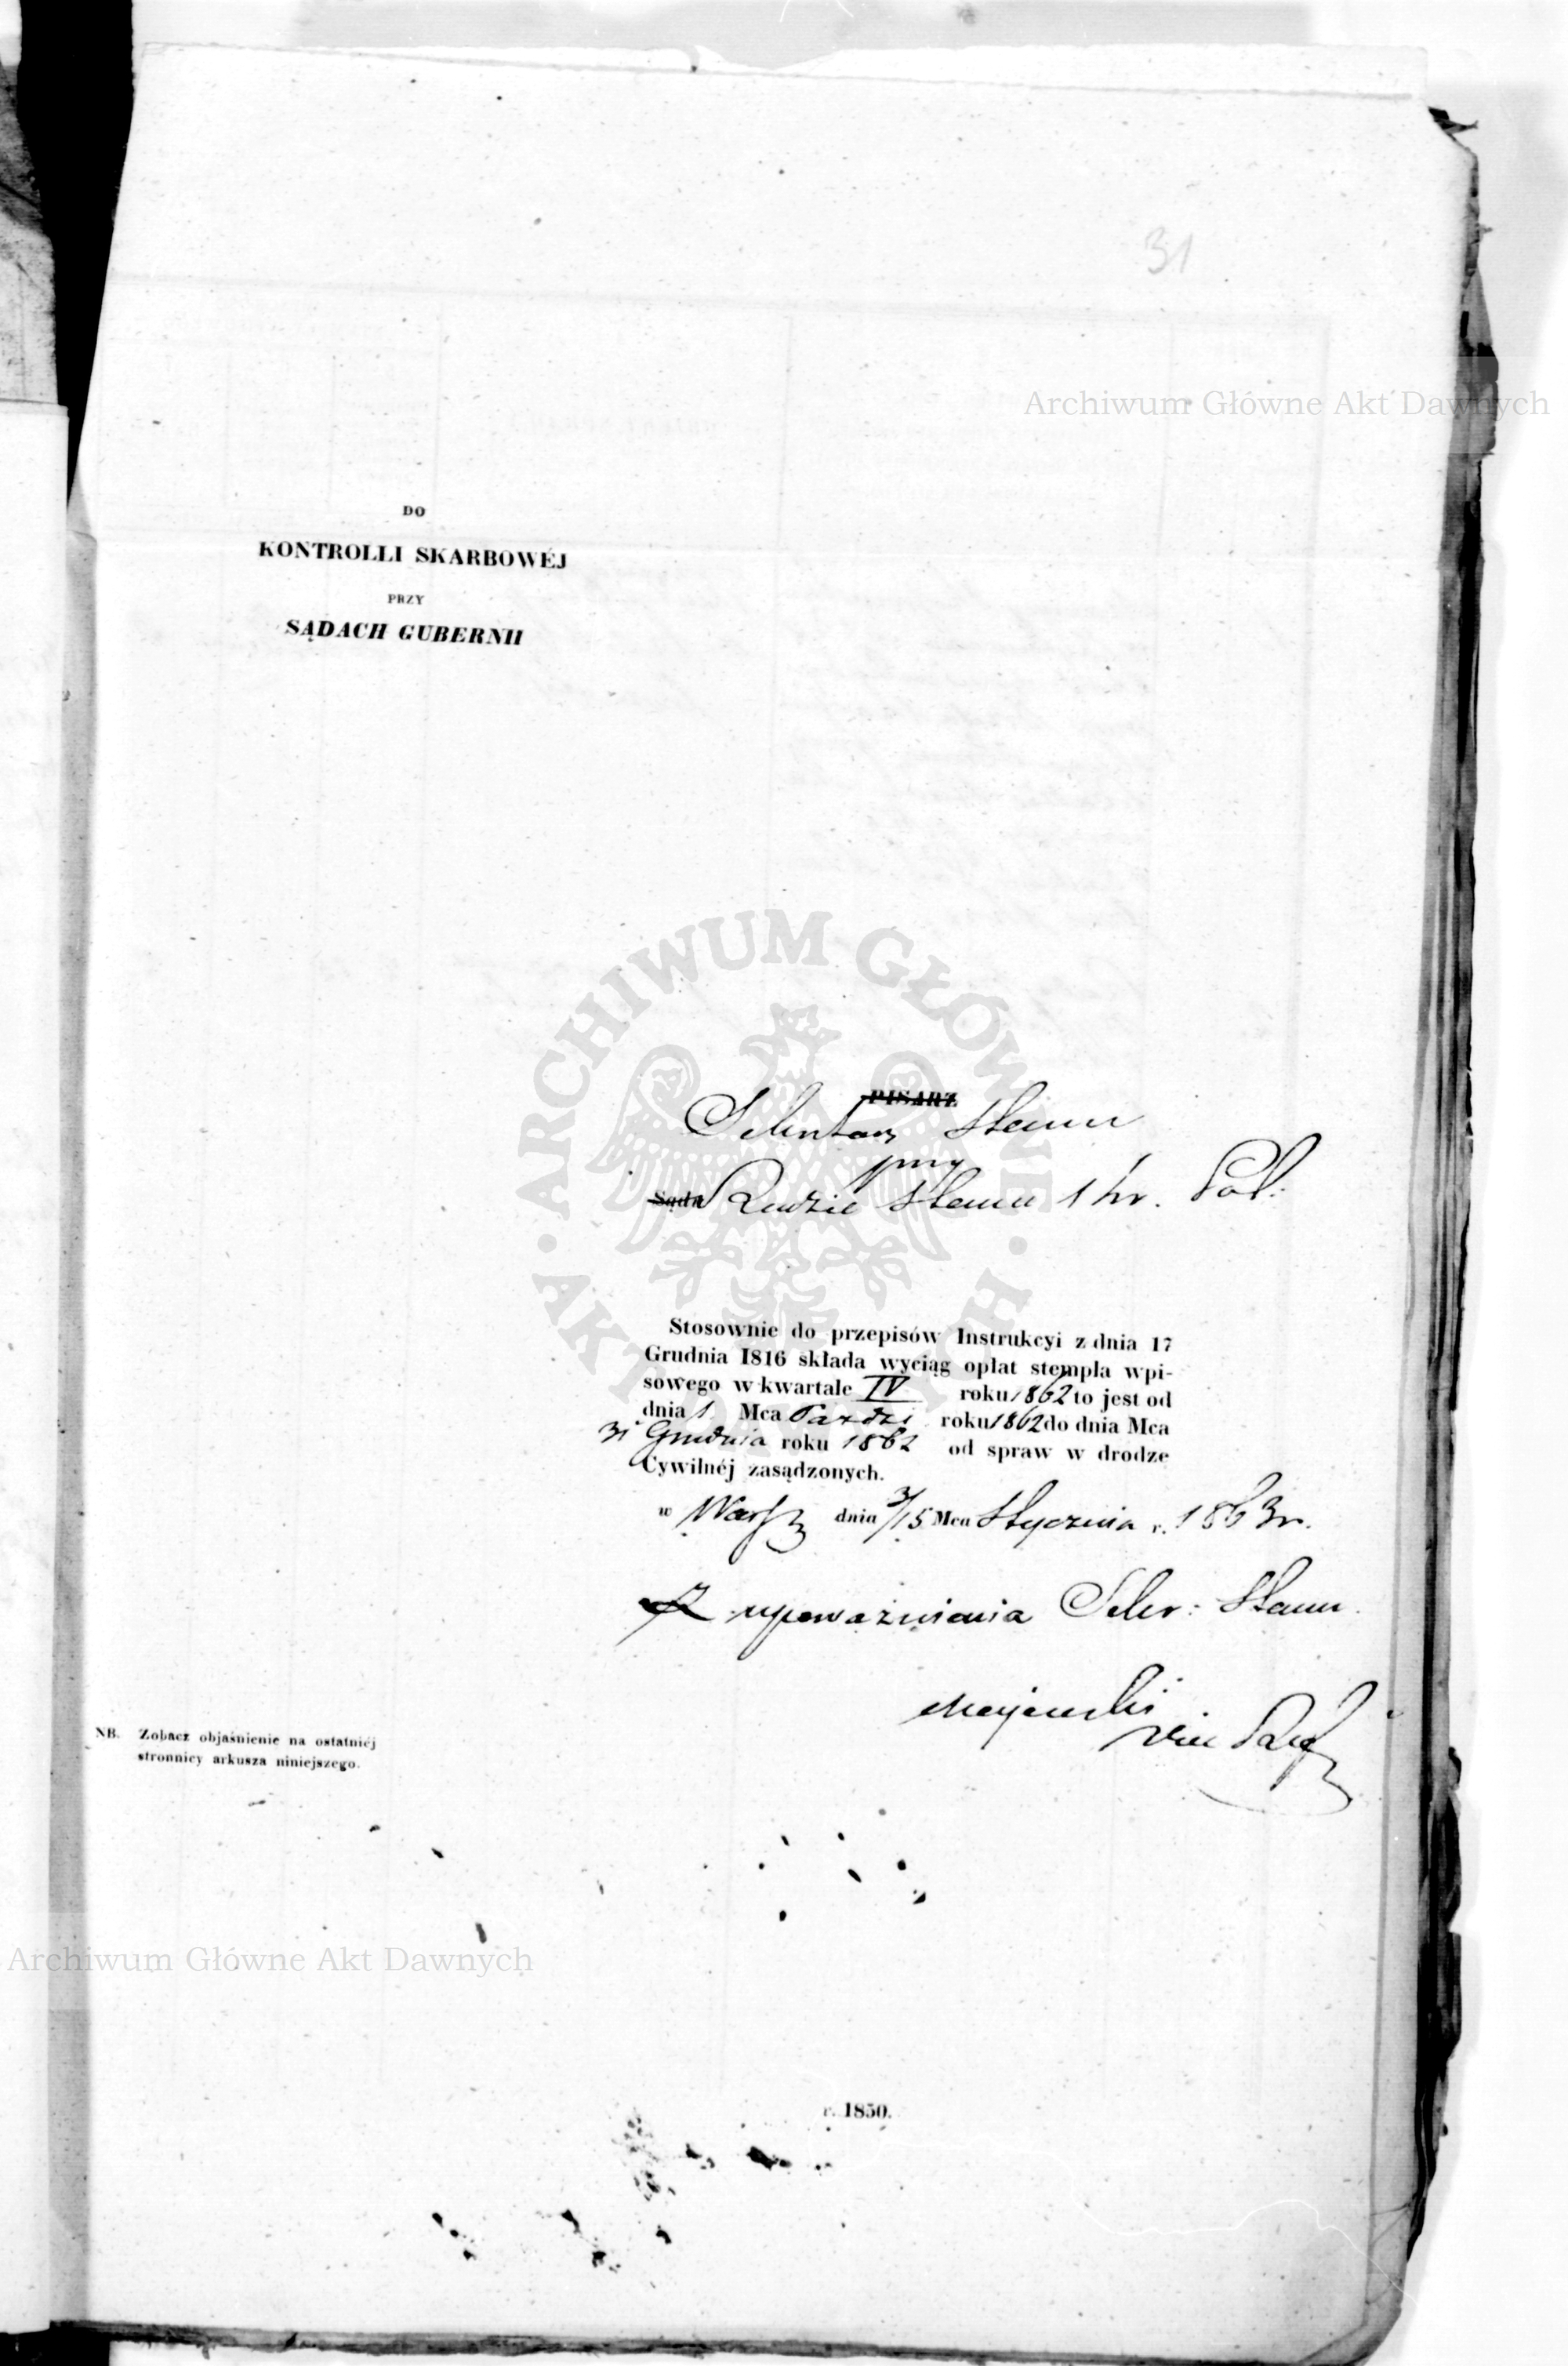 31
Archiwum Główne Akt Dawnych
DO
KONTROLLI SKARBOWÉJ
PRZY
SĄDACH GUBERNII
ARCHIWUM GŁÓWNE
AKT DAWNYCH
PISARZ
Sekretarz Stanu
przy
Sądu Radzie Stanu Kr. Pol:
Stosownie do przepisów Instrukcyi z dnia 17
Grudnia 1816 składa wyciąg opłat stempla wpi-
sowego w kwartale IV roku 1862 to jest od
dnia 1 Mca Paźdz: roku 1862 do dnia Mca
31 Grudnia roku 1862 od spraw w drodze
Cywilnéj zasądzonych.
w dnia 3/15 Mca Stycznia r. 1863 r.
Z upoważnienia Sekr: Stanu
Majewski
NB. Zobacz objaśnienie na ostatniéj
stronnicy arkusza niniejszego.
Archiwum Główne Akt Dawnych
r. 1850.